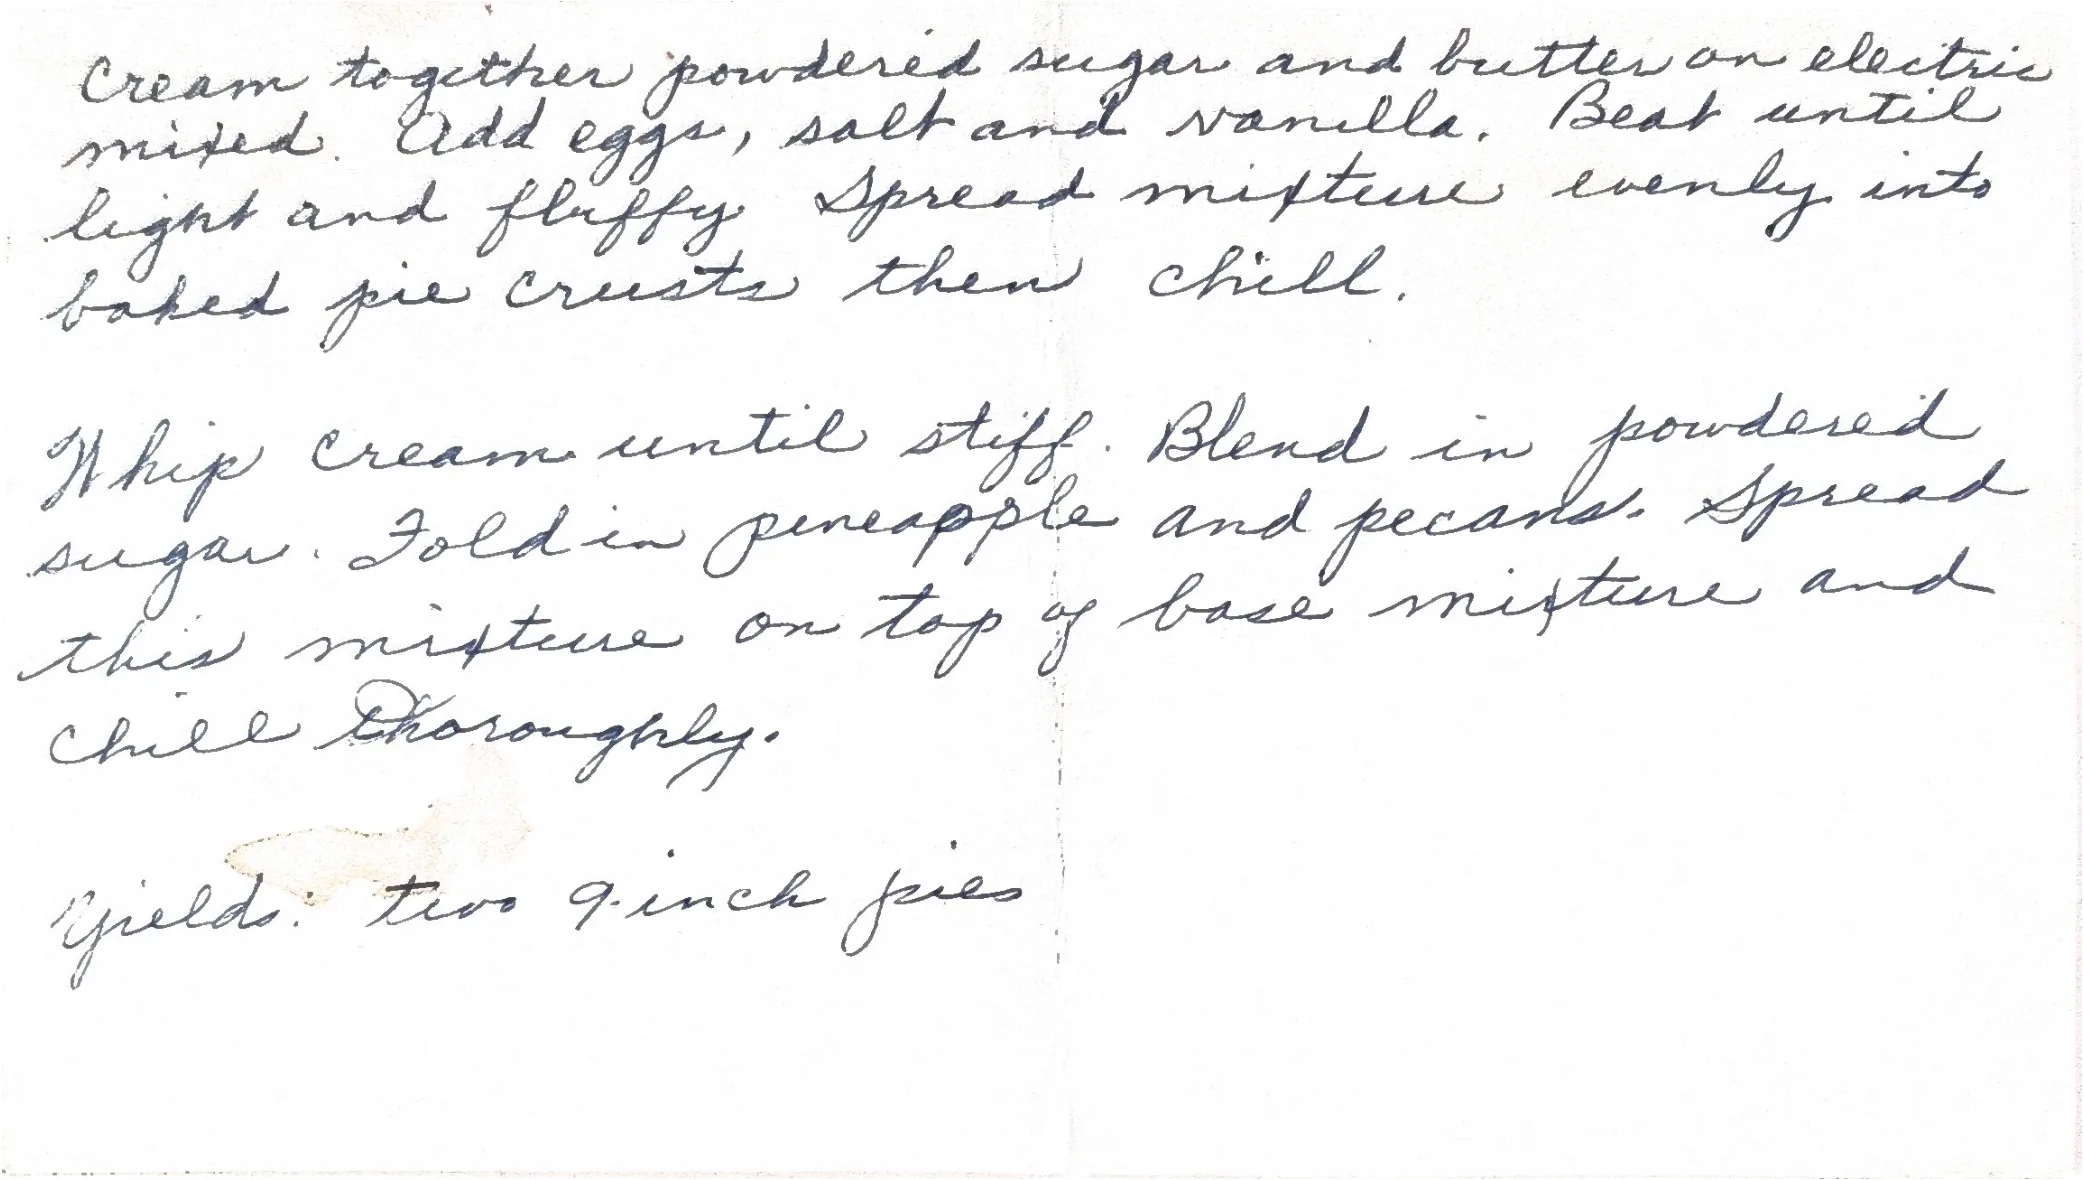 Cream together powdered sugar and butter on electric
mixed. Add eggs, salt and vanilla. Beat until
light and fluffy. Spread mixture evenly into
baked pie crusts then chill.
Whip cream until stiff. Blend in powdered
sugar. Fold in pineapple and pecans. Spread
this mixture on top of base mixture and
chill thoroughly.
Yields: two 9-inch pies